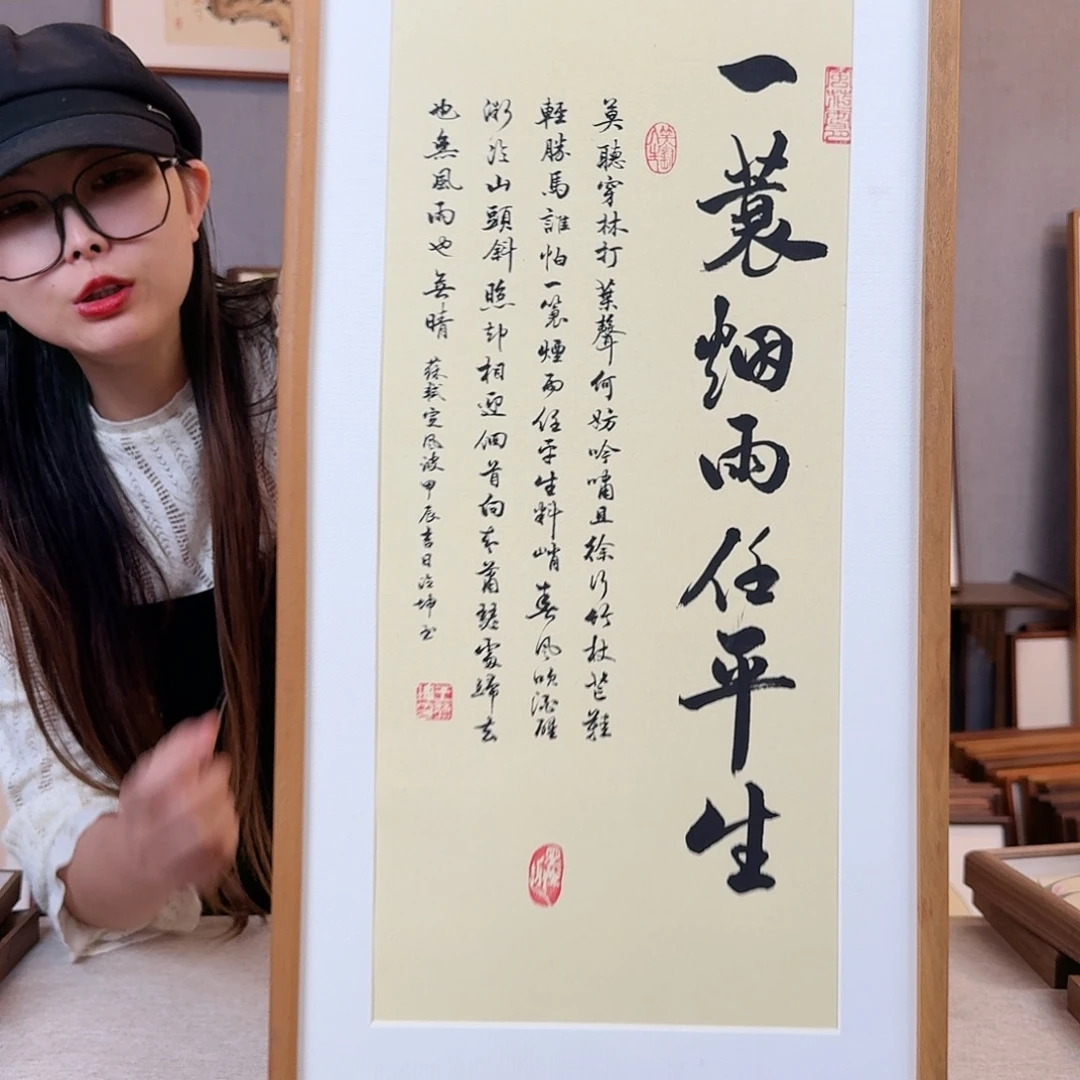 一蓑烟雨任平生
莫聽穿林打葉聲何妨吟嘯且徐行竹杖芒鞋
輕勝馬誰怕一蓑煙雨任平生料峭春風吹酒醒
微冷山頭斜照却相迎回首向來蕭瑟處歸去
也無風雨也無晴 蘇軾定風波甲辰吉日坤书